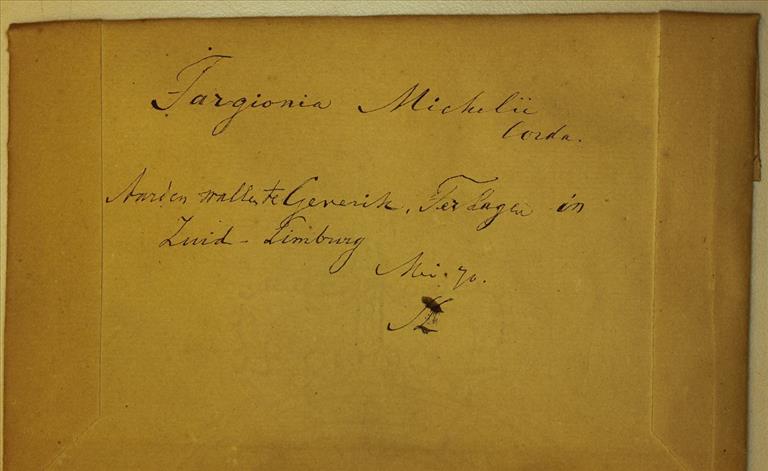 Targionia Michelii
Corda.
Aarden wallen te Geverik, Ter Hagen in
Zuid-Limburg
Mei. 70.